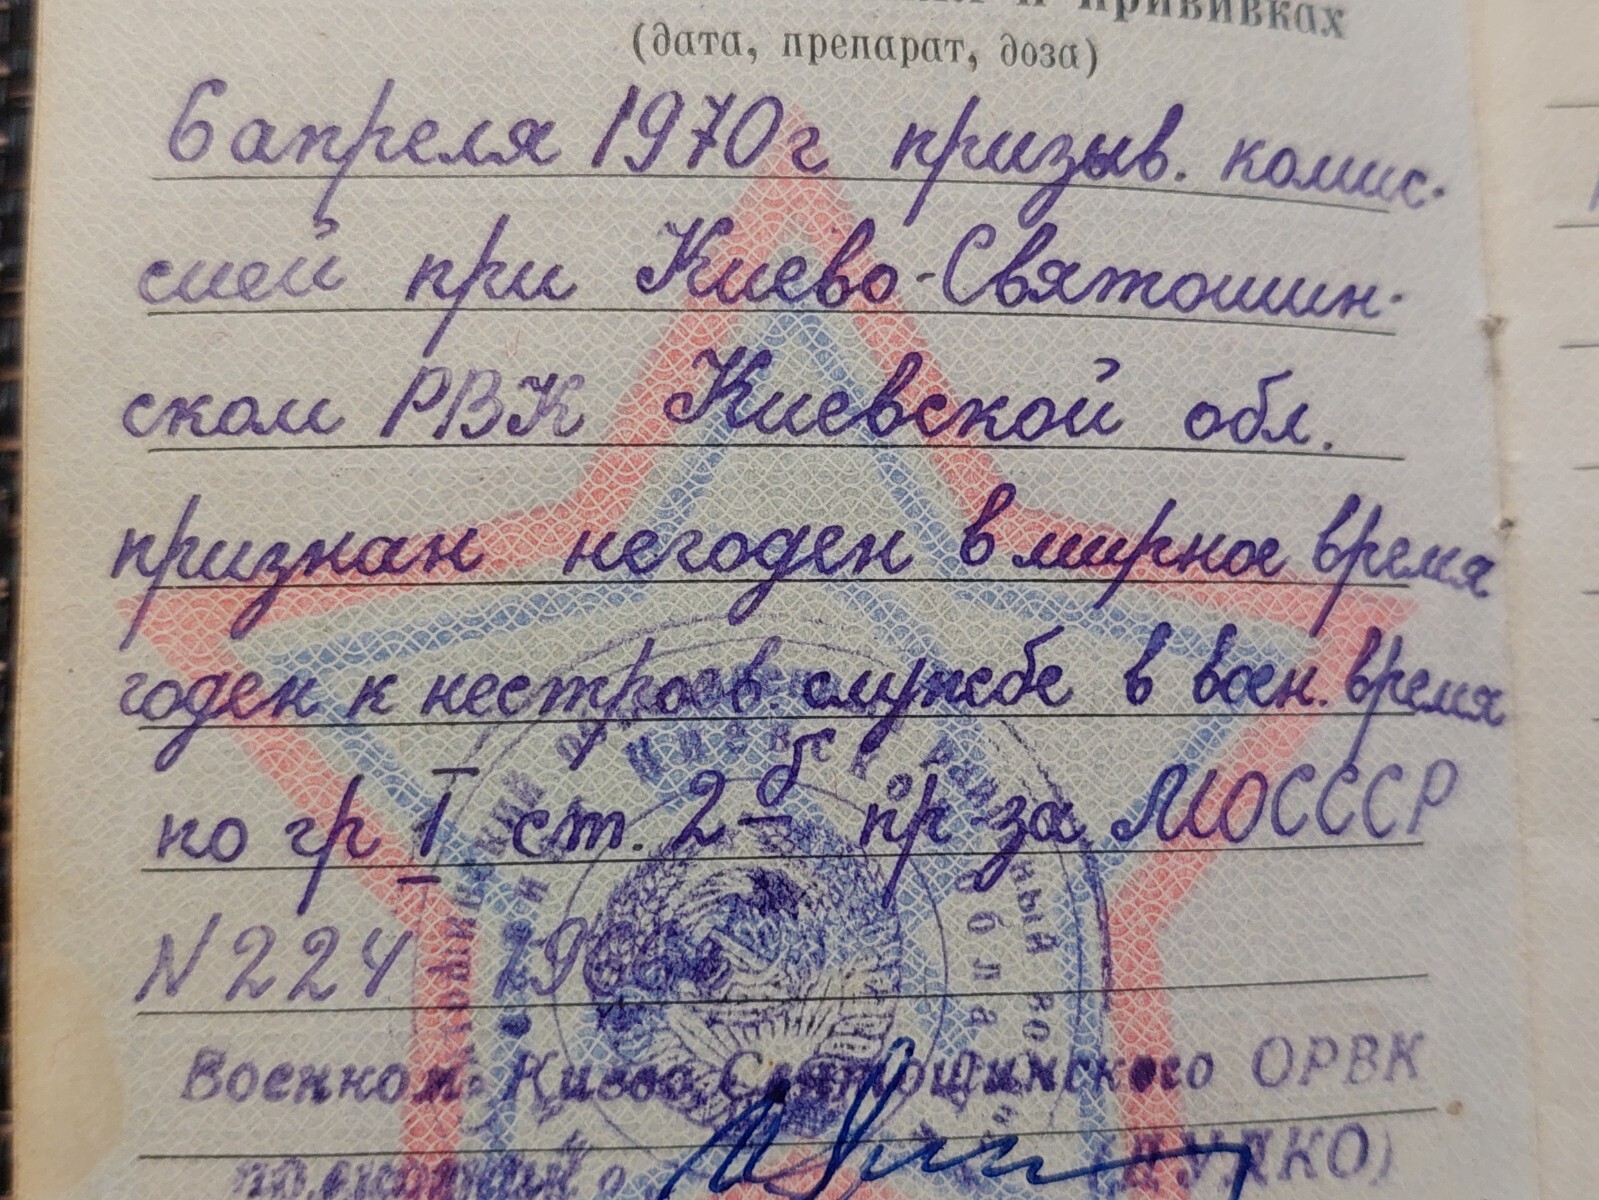 и прививках
(дата, препарат, доза)
6 апреля 1970 г призыв. комис-
сией при Киево-Святошин-
ском РВК Киевской обл.
признан негоден в мирное время
годен к нестроев. службе в воен. время
по гр I ст. 2-б пр-за МОСССР
N 224 1966г
Военком Киево Святошинского ОРВК
полковник
(ДУДКО)